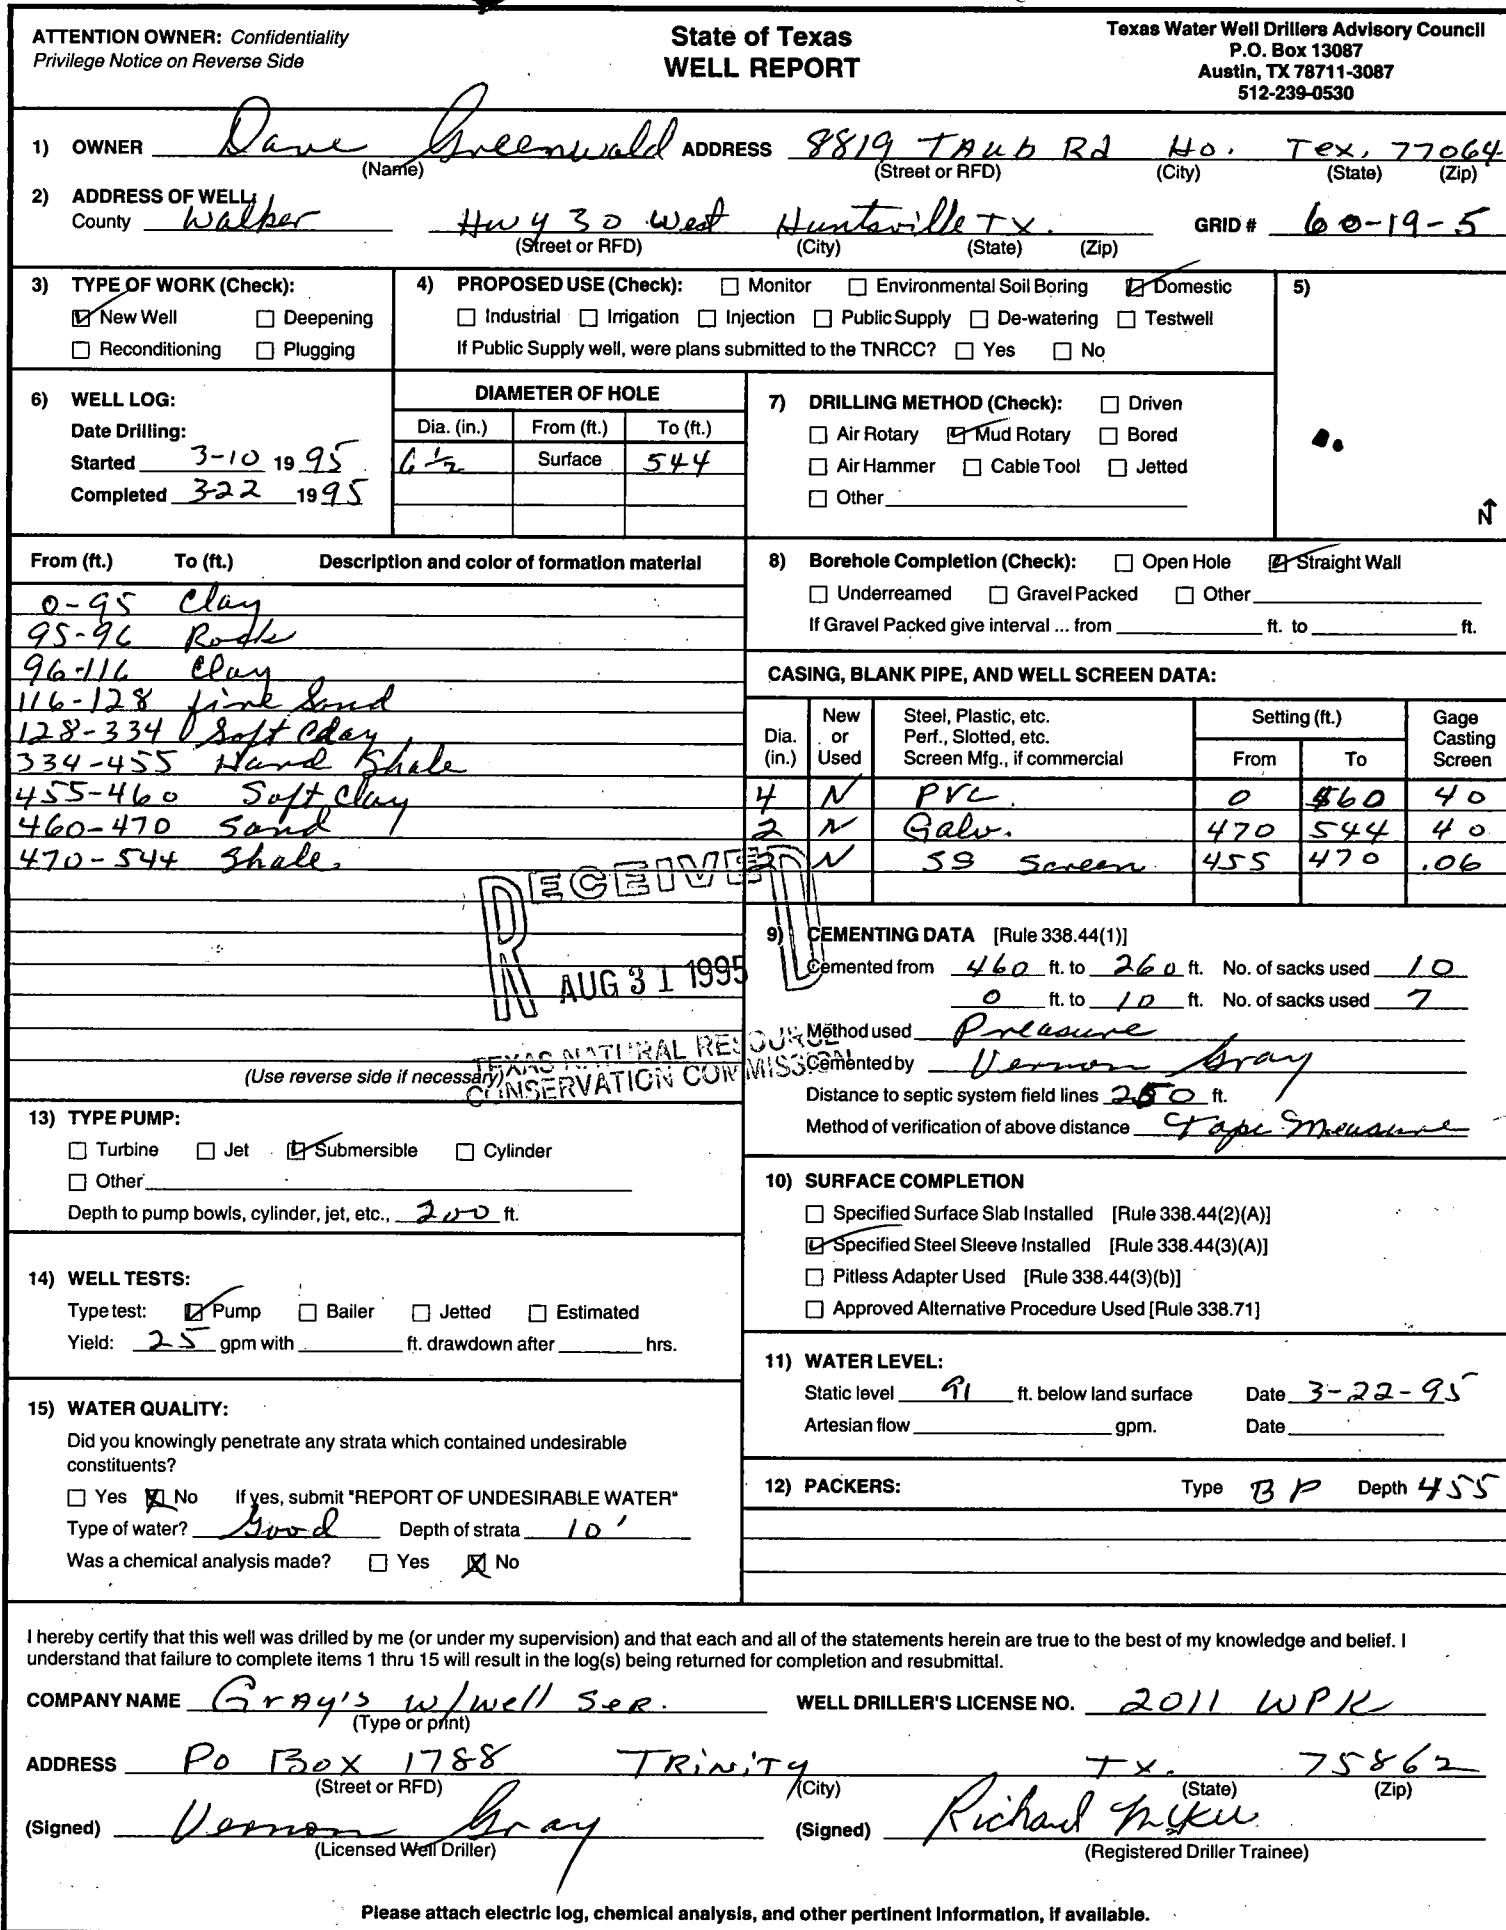 ATTENTION OWNER: Confidentiality
Privilege Notice on Reverse Side
State of Texas
WELL REPORT
Texas Water Well Drillers Advisory Council
P.O. Box 13087
Austin, TX 78711-3087
512-239-0530
1) OWNER Dave Greenwald ADDRESS 8819 TAub Rd Ho. Tex. 77064
(Name) (Street or RFD) (City) (State) (Zip)
2) ADDRESS OF WELL:
County Walker Hwy 30 West Huntsville TX. GRID # 60-19-5
(Street or RFD) (City) (State) (Zip)
3) TYPE OF WORK (Check):
New Well Deepening
Reconditioning Plugging
4) PROPOSED USE (Check): Monitor Environmental Soil Boring Domestic
Industrial Irrigation Injection Public Supply De-watering Testwell
If Public Supply well, were plans submitted to the TNRCC? Yes No
5)
N
6) WELL LOG:
Date Drilling:
Started 3-10 19 95
Completed 3-22 19 95
DIAMETER OF HOLE
Dia. (in.) From (ft.) To (ft.)
6 1/2 Surface 544
7) DRILLING METHOD (Check): Driven
Air Rotary Mud Rotary Bored
Air Hammer Cable Tool Jetted
Other
From (ft.) To (ft.) Description and color of formation material
0-95 Clay
95-96 Rock
96-116 Clay
116-128 fine Sand
128-334 Soft Clay
334-455 Hard Shale
455-460 Soft Clay
460-470 Sand
470-544 Shale
(Use reverse side if necessary)
RECEIVED
AUG 31 1995
TEXAS NATURAL RESOURCE
CONSERVATION COMMISSION
8) Borehole Completion (Check): Open Hole Straight Wall
Underreamed Gravel Packed Other
If Gravel Packed give interval ... from ft. to ft.
CASING, BLANK PIPE, AND WELL SCREEN DATA:
Dia. (in.) New or Used Steel, Plastic, etc. Perf., Slotted, etc. Screen Mfg., if commercial Setting (ft.) From To Gage Casting Screen
4 N PVC. 0 460 40
2 N Galv. 470 544 40
2 N SS Screen 455 470 .06
9) CEMENTING DATA [Rule 338.44(1)]
Cemented from 460 ft. to 260 ft. No. of sacks used 10
0 ft. to 10 ft. No. of sacks used 7
Method used Preasure
Cemented by Vernon Gray
Distance to septic system field lines 250 ft.
Method of verification of above distance Tape Measure
10) SURFACE COMPLETION
Specified Surface Slab Installed [Rule 338.44(2)(A)]
Specified Steel Sleeve Installed [Rule 338.44(3)(A)]
Pitless Adapter Used [Rule 338.44(3)(b)]
Approved Alternative Procedure Used [Rule 338.71]
11) WATER LEVEL:
Static level 91 ft. below land surface Date 3-22-95
Artesian flow gpm. Date
12) PACKERS: Type BP Depth 455
13) TYPE PUMP:
Turbine Jet Submersible Cylinder
Other
Depth to pump bowls, cylinder, jet, etc., 200 ft.
14) WELL TESTS:
Type test: Pump Bailer Jetted Estimated
Yield: 25 gpm with ft. drawdown after hrs.
15) WATER QUALITY:
Did you knowingly penetrate any strata which contained undesirable
constituents?
Yes No If yes, submit "REPORT OF UNDESIRABLE WATER"
Type of water? Good Depth of strata 10'
Was a chemical analysis made? Yes No
I hereby certify that this well was drilled by me (or under my supervision) and that each and all of the statements herein are true to the best of my knowledge and belief. I
understand that failure to complete items 1 thru 15 will result in the log(s) being returned for completion and resubmittal.
COMPANY NAME Gray's w/well Ser. WELL DRILLER'S LICENSE NO. 2011 WPK
(Type or print)
ADDRESS Po Box 1788 TRiNiTy TX. 75862
(Street or RFD) (City) (State) (Zip)
(Signed) Vernon Gray (Signed) Richard
(Licensed Well Driller) (Registered Driller Trainee)
Please attach electric log, chemical analysis, and other pertinent information, if available.